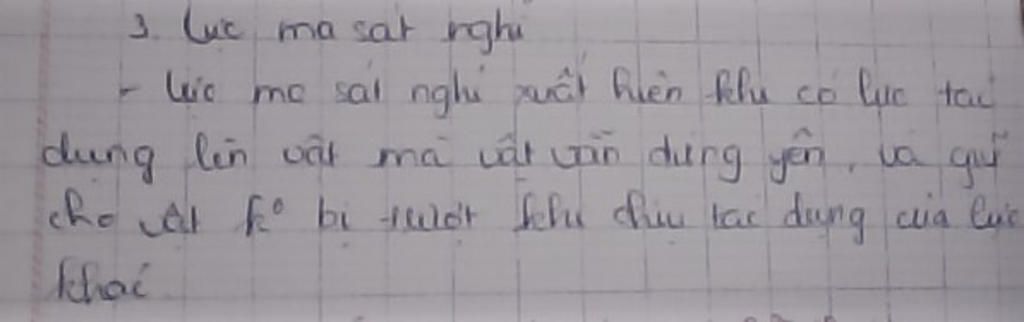 3. Lực ma sát nghỉ
- Lực ma sát nghỉ xuất hiện khi có lực tác
dụng lên vật mà vật vẫn đứng yên, và giữ
cho vật k° bị trượt khi chịu tác dụng của lực
khác.